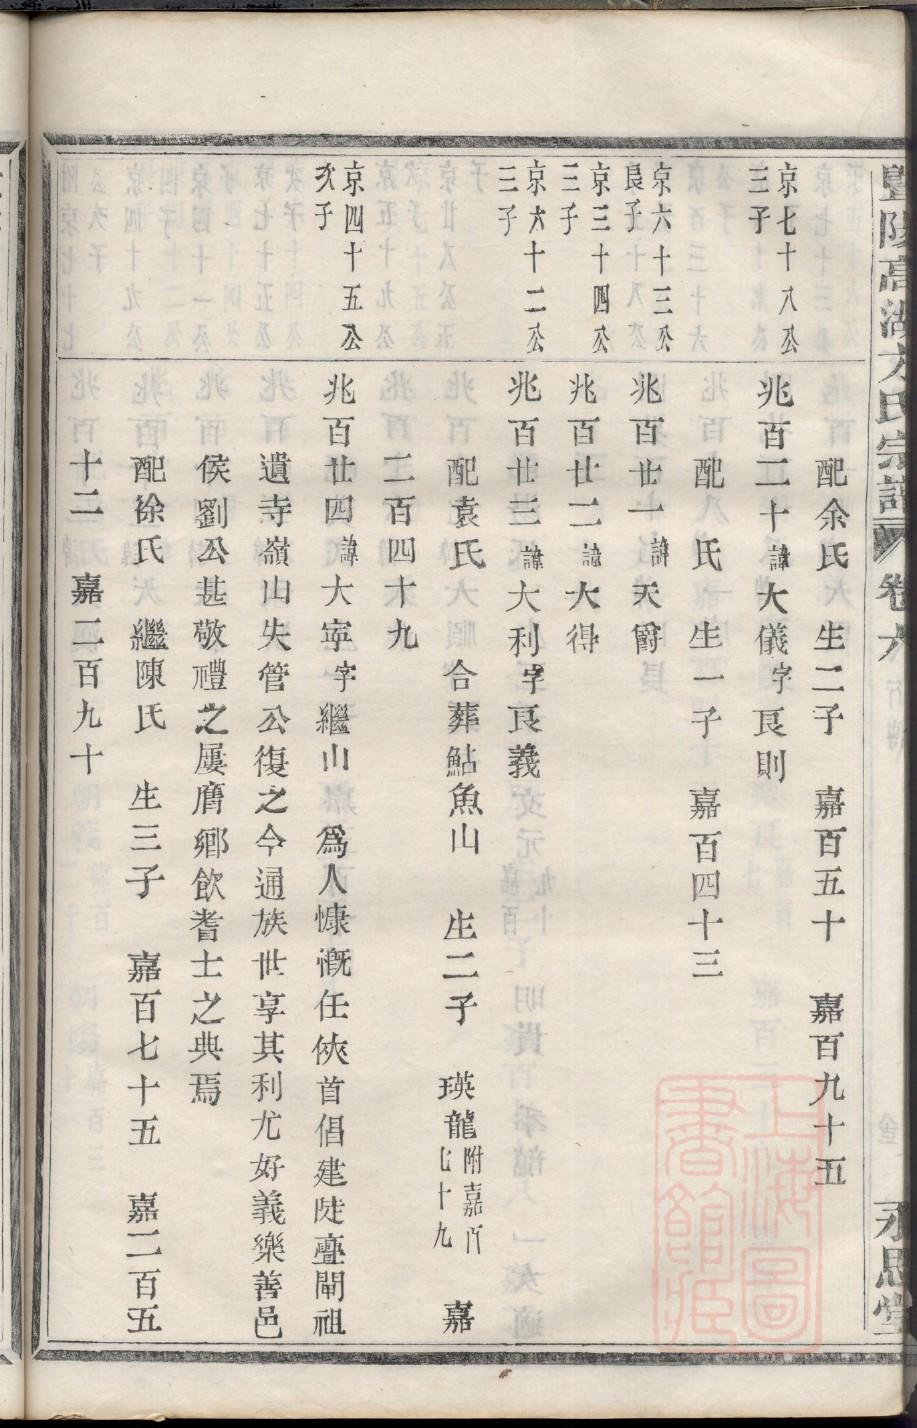 暨陽高湖方氏宗譜 卷六 永思堂
配余氏 生二子 嘉百五十 嘉百九十五
京七十八公三子
兆百二十諱大儀字良則
配 氏 生一子 嘉百四十三
京六十三公良子
兆百廿一諱天爵
京三十四公三子
兆百廿二諱大得
京六十二公三子
兆百廿三諱大利字良義
配袁氏 合葬鮎魚山 生二子 瑛龍附嘉百七十九 嘉
二百四十九
京四十五公次子
兆百廿四諱大寧字繼山 爲人慷慨任俠首倡建陡亹閘祖
遺寺嶺山失管公復之今通族世享其利尤好義樂善邑
侯劉公甚敬禮之屢膺鄉飲耆士之典焉
配徐氏 繼陳氏 生三子 嘉百七十五 嘉二百五
十二 嘉二百九十
上海圖書館藏